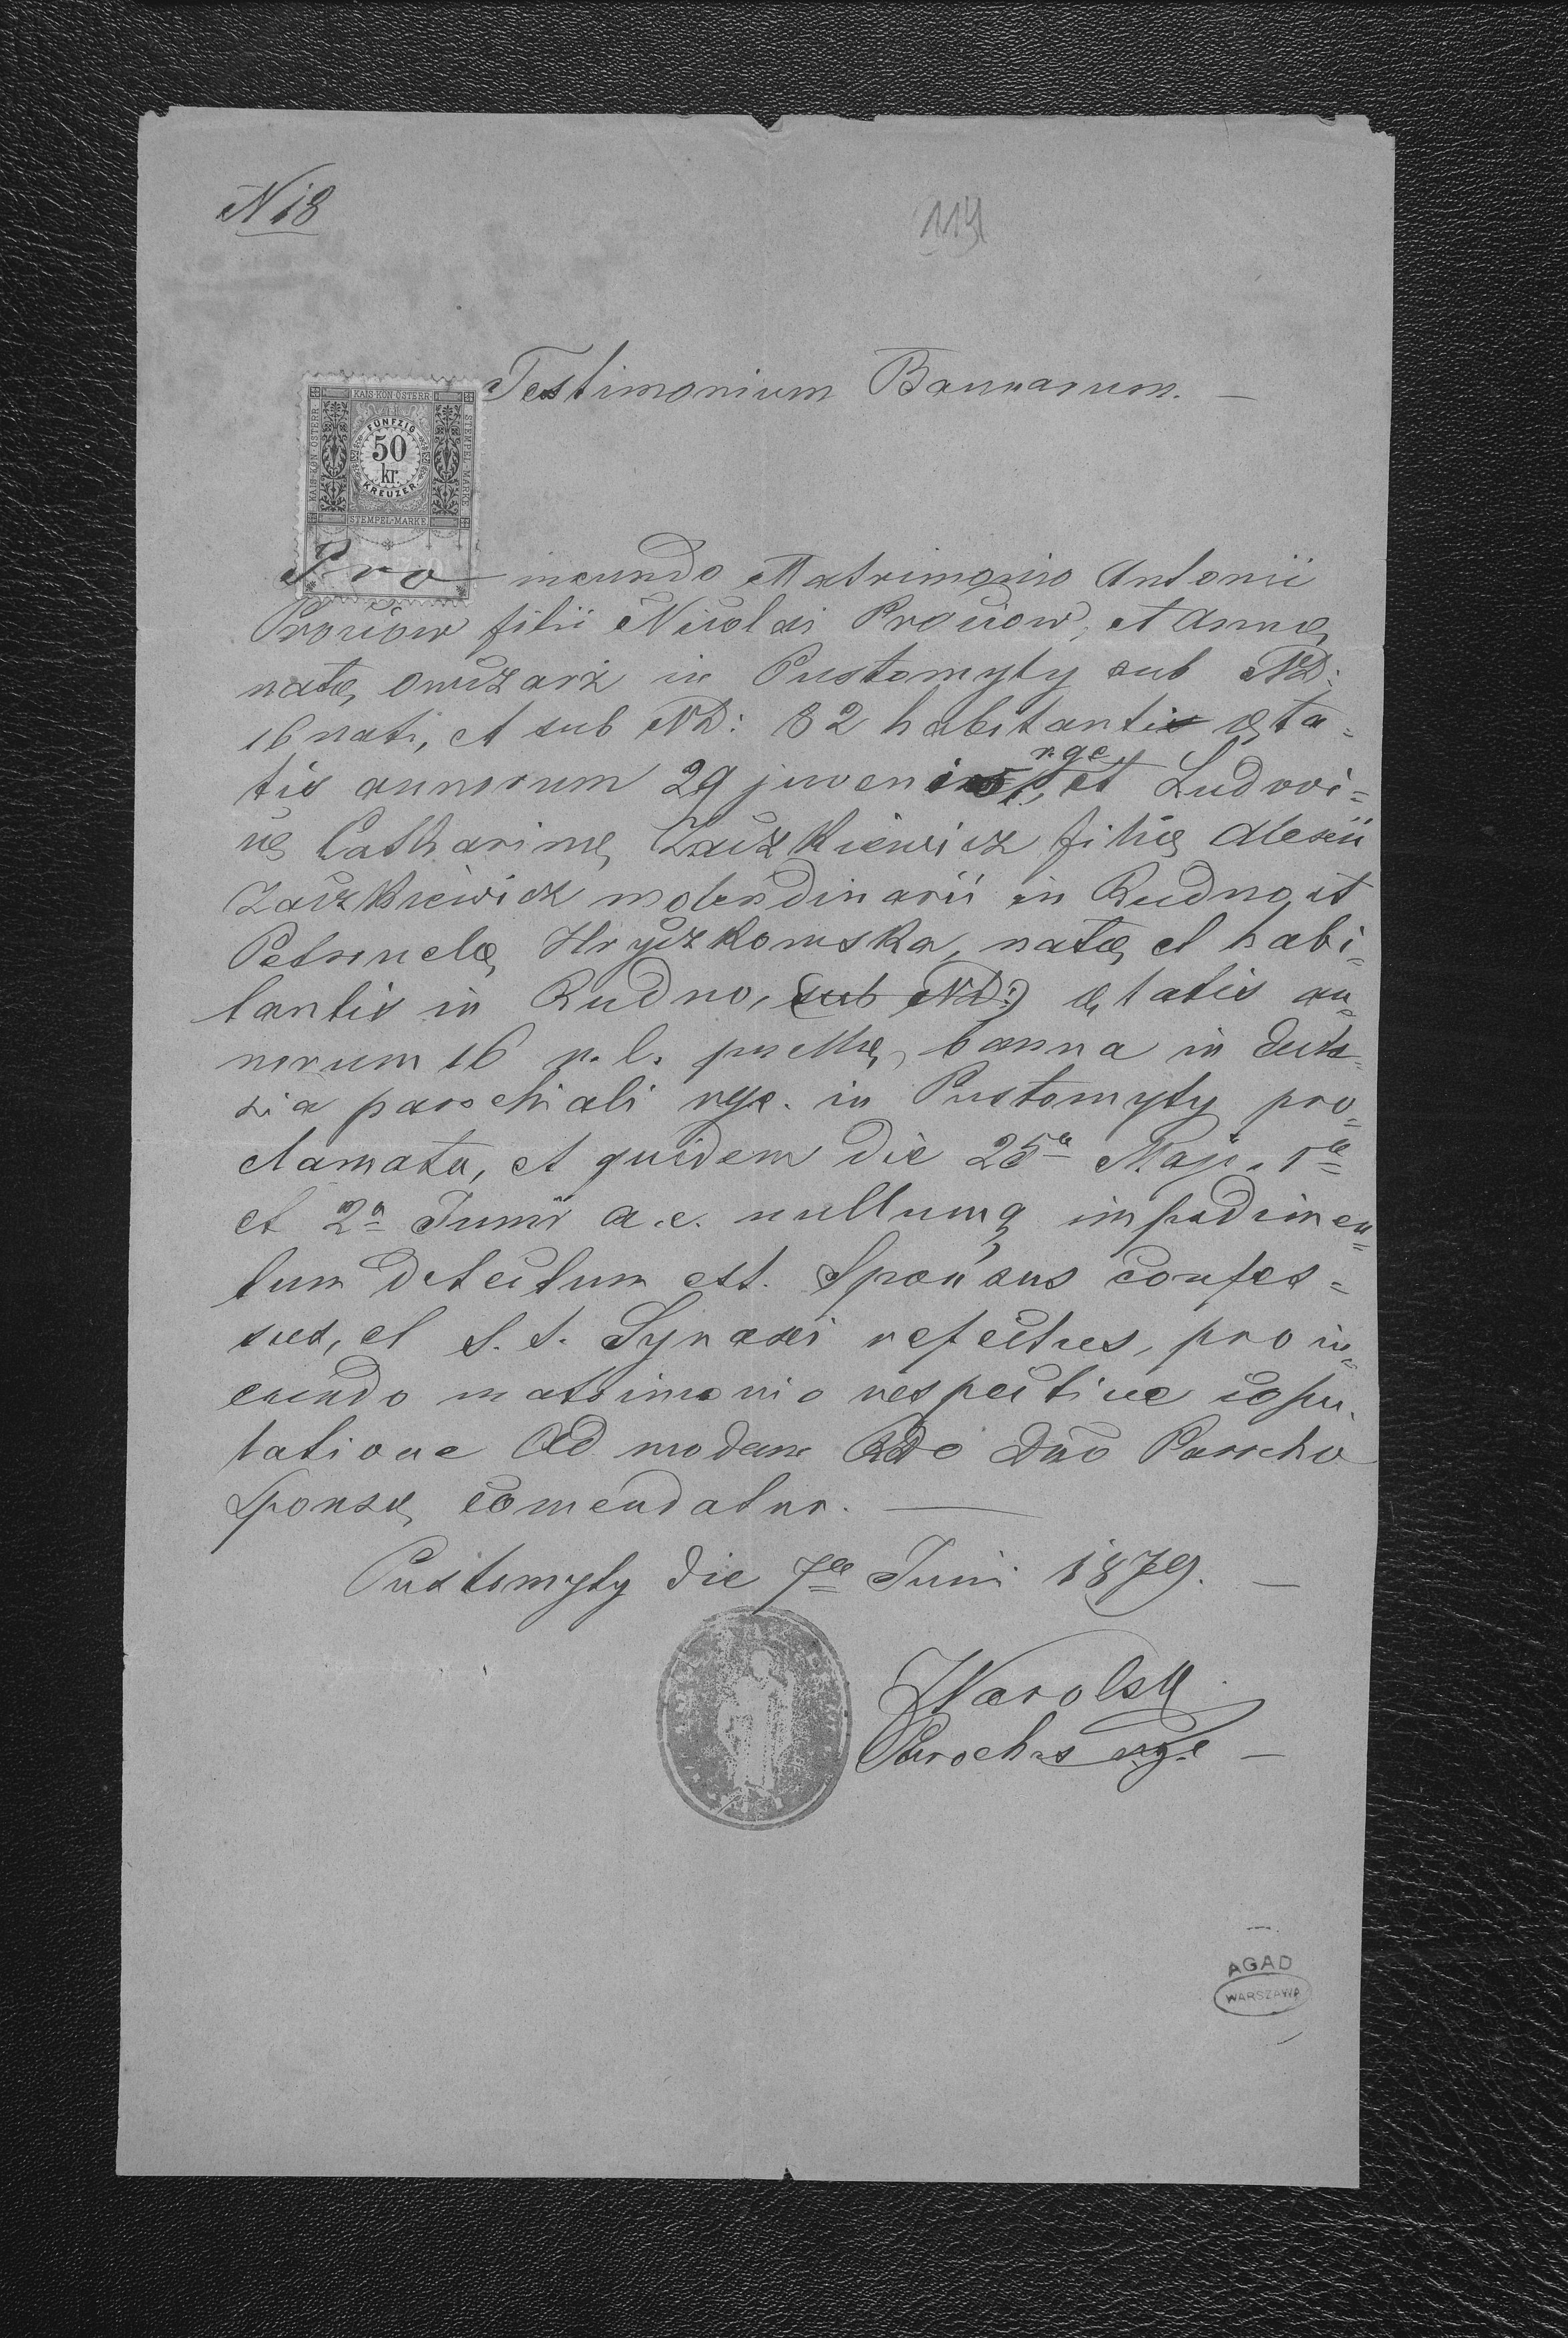 N 18
114
Testimonium Bannarum. —
KAIS. KÖN. ÖSTERR.
KAIS. KÖN. ÖSTERR.
STEMPEL-MARKE
FÜNFZIG
50
kr.
KREUZER
STEMPEL-MARKE
Pro ineundo Matrimonio Antonii
Prociow filii Nicolai Prociow, et Annæ
natæ Owczarz in Pustomyty sub ND:
16 nati, et sub ND: 82 habitantis æta=
tis annorum 29 juvenis rge et Ludovi=
cæ Catharinæ Zaczkiewicz filiæ Alexii
Zaczkiewicz molendinarii in Rudno, et
Petronelæ Hryczkowska, natæ et habi=
tantis in Rudno, (sub ND:) ætatis an=
norum 16 r. l. puellæ, banna in Eccle=
sia parochiali rgc. in Pustomyty pro=
clamata, et quidem die 25a Maji. 1a
et 2a Junii a. c. nullumq impedimen=
tum detectum est. Sponsus confes=
sus, et S. S. Synaxi refectus, pro in=
eundo matrimonio respective copu=
latione Ad modum Rdo Dno Parocho
Sponsæ comendatur. —
Pustomyty die 7a Junii 1879. —
Parochus rgc —
AGAD
WARSZAWA